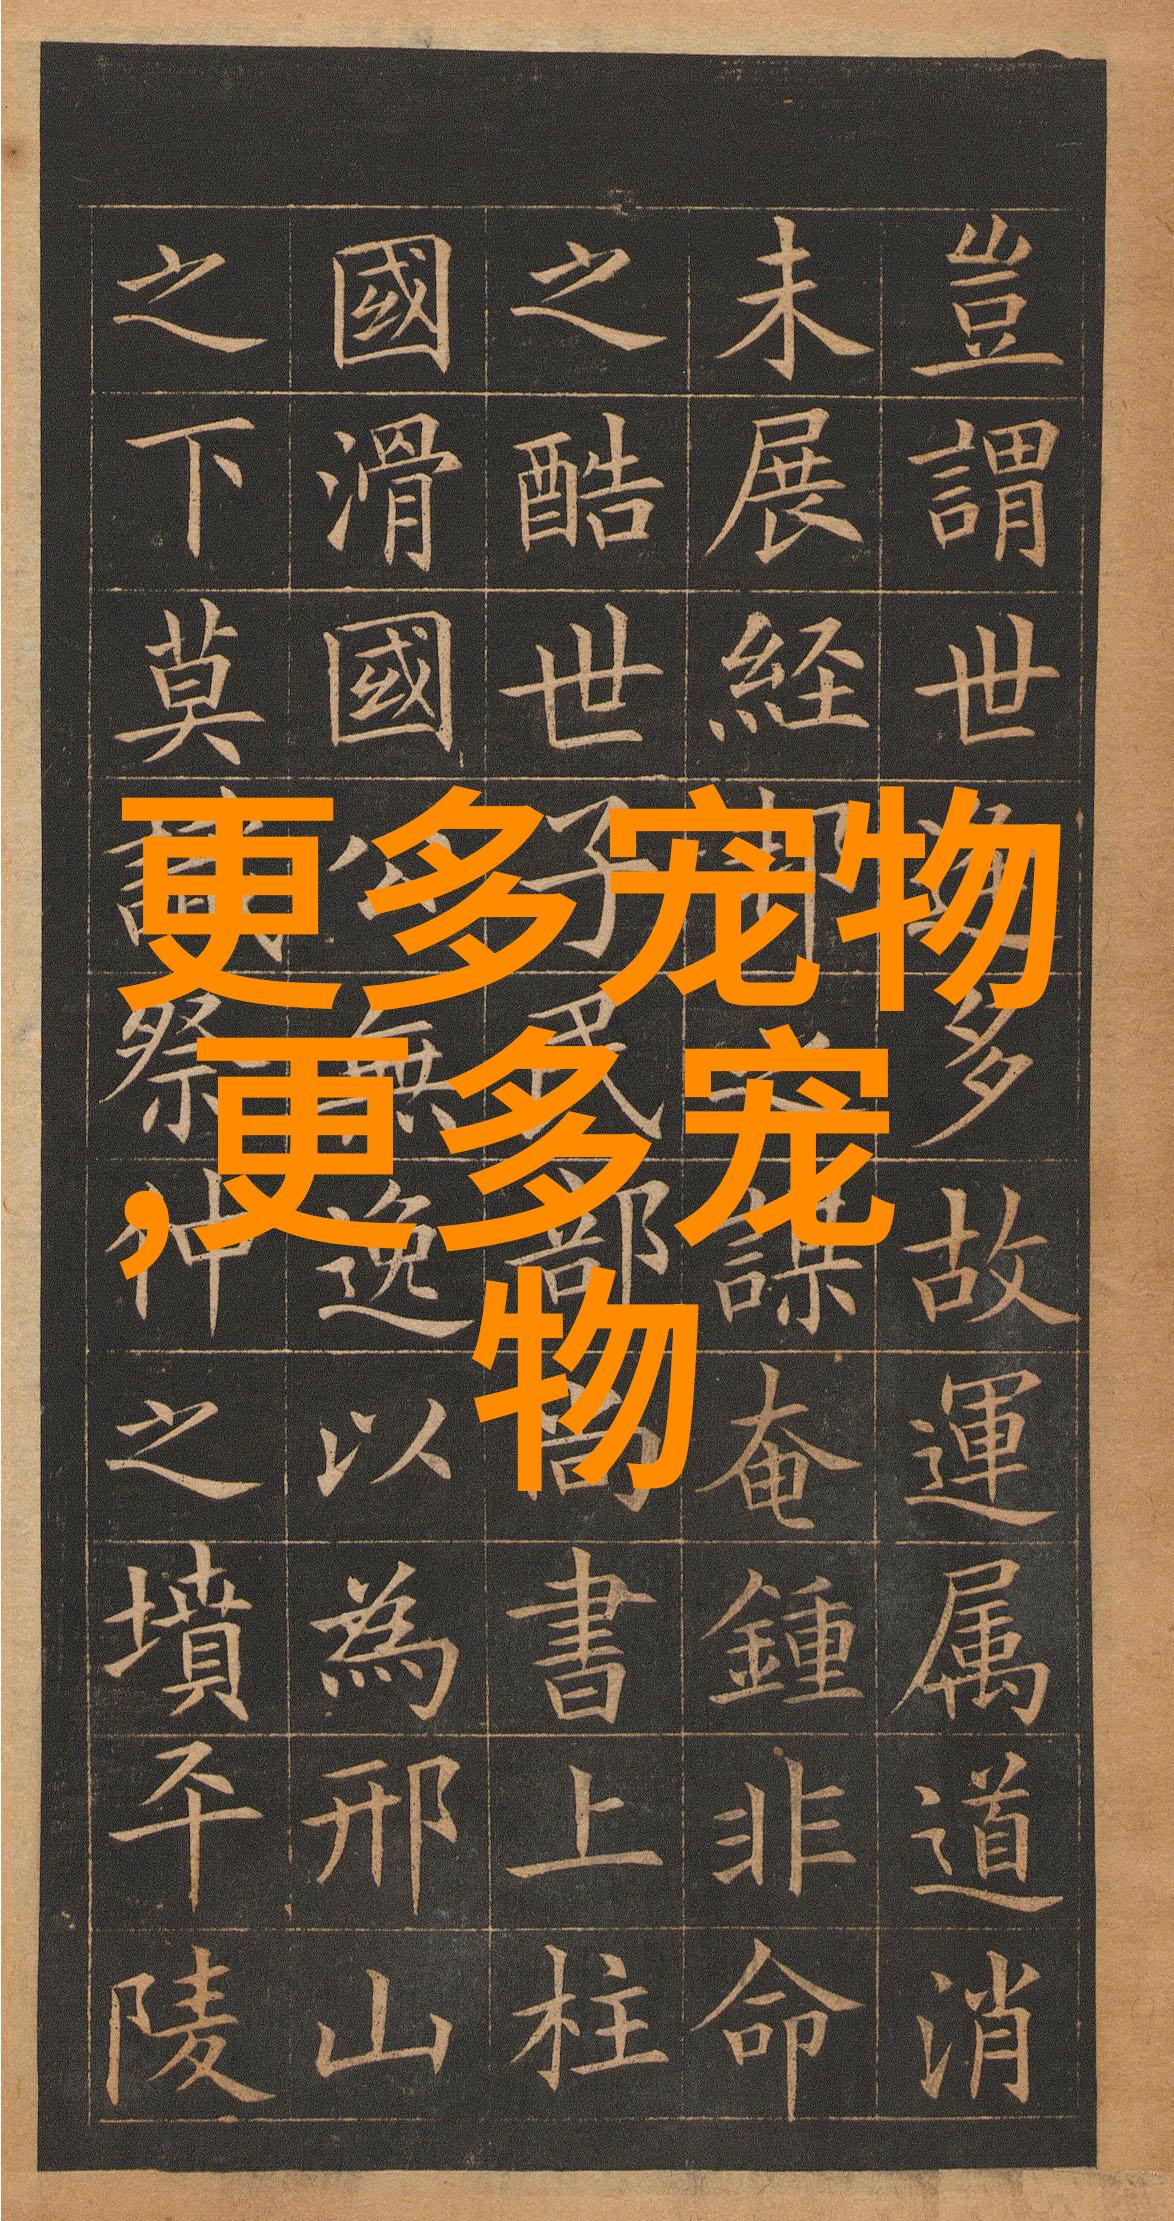 豈謂世多故運属道消
未展経邦之謀奄鍾非命
之酷世子民部尚書上柱
國滑國公無逸以為邢山
之下莫識祭仲之墳平陵
更多宠物
,更多宠
物